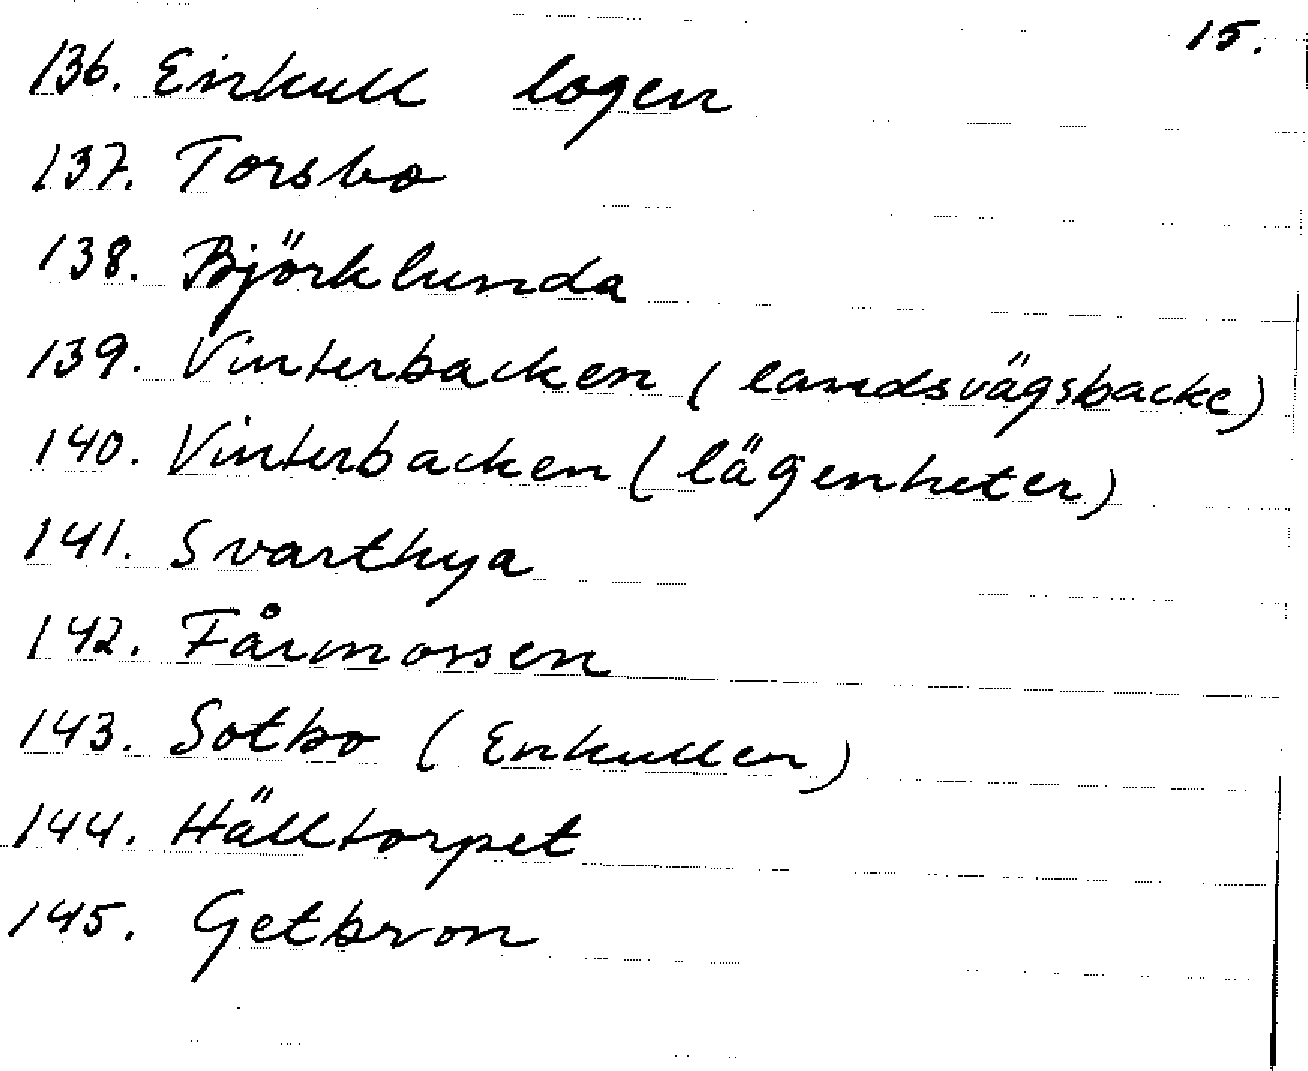 15.
136. Enkull logen
137. Torsbo
138. Björklunda
139. Vinterbacken (landsvägsbacke)
140. Vinterbacken (lägenheter)
141. Svarthya
142. Fårmossen
143. Sotbo (Enkullen)
144. Hälltorpet
145. Getbron